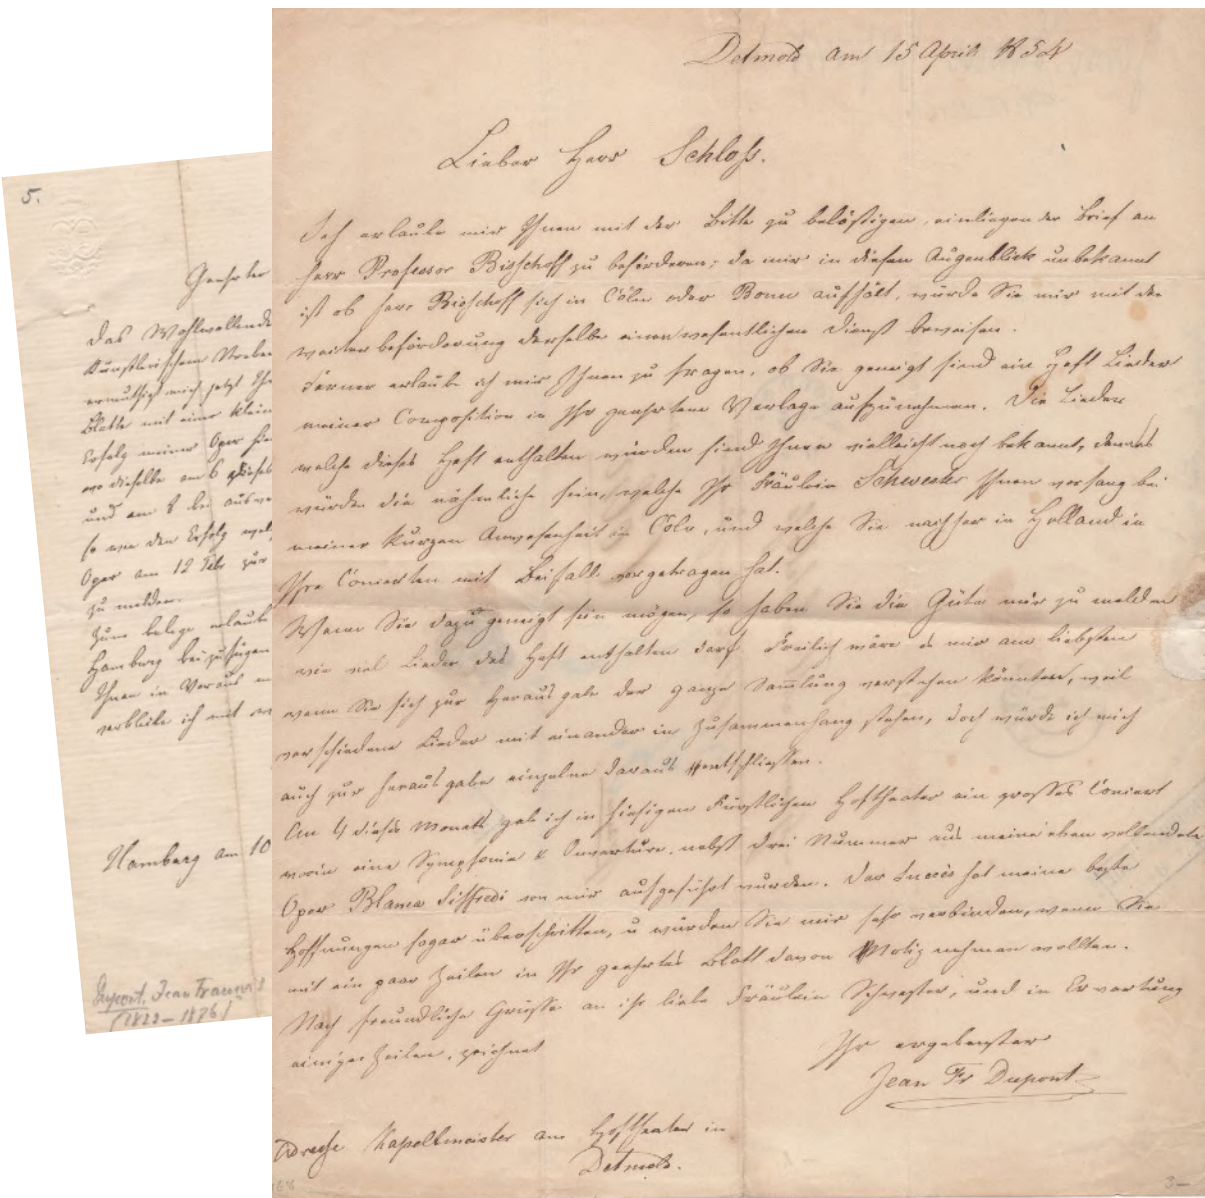 5.
Geehrter
Das Wohlwollende
Künstlerischem Streben
ermuthigt mich jetzt Ihr
Blatte mit einer klein
Erfolg meiner Oper hie
wo dieselbe am 6 dieses
und am 8 bei
so wie den Erfolg
Oper am 12 Febr zur
zu melden.
Zum belege erlaube
Hamburg beizufügen
Ihnen in Voraus
verbleibe ich mit
Hamburg am 10
Dupont, Jean Francois
(1822–1875)
Detmold am 15 April 1854
Lieber Herr Schloß.
Ich erlaube mir Ihnen mit der Bitte zu belästigen, einliegender Brief an
Herr Professor Bischoff zu beförderen; da mir in diesen Augenblick unbekannt
ist ob Herr Bischoff sich in Cöln oder Bonn aufhält, würde Sie mir mit der
weiterbeförderung derselbe einen wesentlichen Dienst beweisen.
Ferner erlaube ich mir Ihnen zu fragen, ob Sie geneigt sind ein Heft Lieder
meiner Composition in Ihr geehrten Verlage aufzunehmen. Die Lieder
welche dieses Heft enthalten würden sind Ihnen vielleicht noch bekannt, denn es
würde die nähmliche sein, welche Ihr Fräulein Schwester Ihnen vorsang bei
meiner kurzen Anwesenheit in Cöln, und welche Sie nachher in Holland in
Ihre Concerten mit Beifall vorgetragen hat.
Wenn Sie dazu geneigt sein mögen, so haben Sie die Güte mir zu melden
wie viel Lieder das Heft enthalten darf. Freilich wäre es mir am liebsten
wenn Sie sich zur Herausgabe der ganze Sammlung verstehen könnten, weil
verschiedene Lieder mit einander in Zusammenhang stehen, doch würde ich mich
auch zur Herausgabe einzelne daraus entschliessen.
Am 4 dieses Monats gab ich in hiesigen Fürstlichen Hoftheater ein grosses Concert
worin eine Symphonie & Ouverture, nebst drei Nummer aus meine eben vollendete
Oper Blanca Siffredi von mir aufgeführt wurden. Der Succès hat meine beste
Hoffnungen sogar überschritten, u würden Sie mir sehr verbinden, wenn Sie
mit ein paar Zeilen in Ihr geehrtes Blatt davon Notiz nehmen wollten.
Nach freundliche Grüsse an ihr liebe Fräulein Schwester, und in Erwartung
einiger Zeilen, zeichnet
Ihr ergebenster
Jean Fr Dupont
Adresse Kapellmeister am Hoftheater in
Detmold.
3–